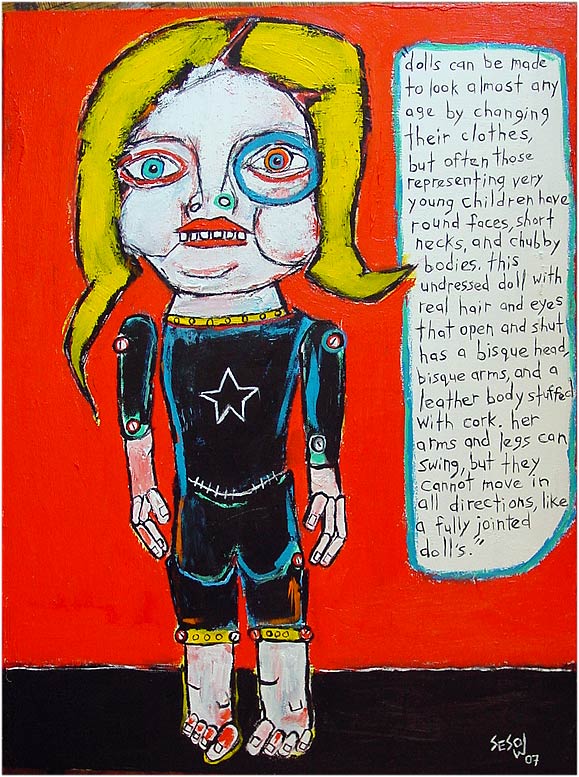 "dolls can be made
to look almost any
age by changing
their clothes,
but often those
representing very
young children have
round faces, short
necks, and chubby
bodies. this
undressed doll with
real hair and eyes
that open and shut
has a bisque head,
bisque arms, and a
leather body stuffed
with cork. her
arms and legs can
swing, but they
cannot move in
all directions, like
a fully jointed
doll's."
SESOW
'07